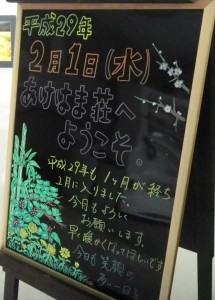 平成29年
2月1日(水)
あけはま荘へ
ようこそ。
平成29年も1ヶ月が経ち
2月に入りました。
今月もよろしく
お願いします。
早く暖かくなってほしいです
今日も笑顔の
多い一日を